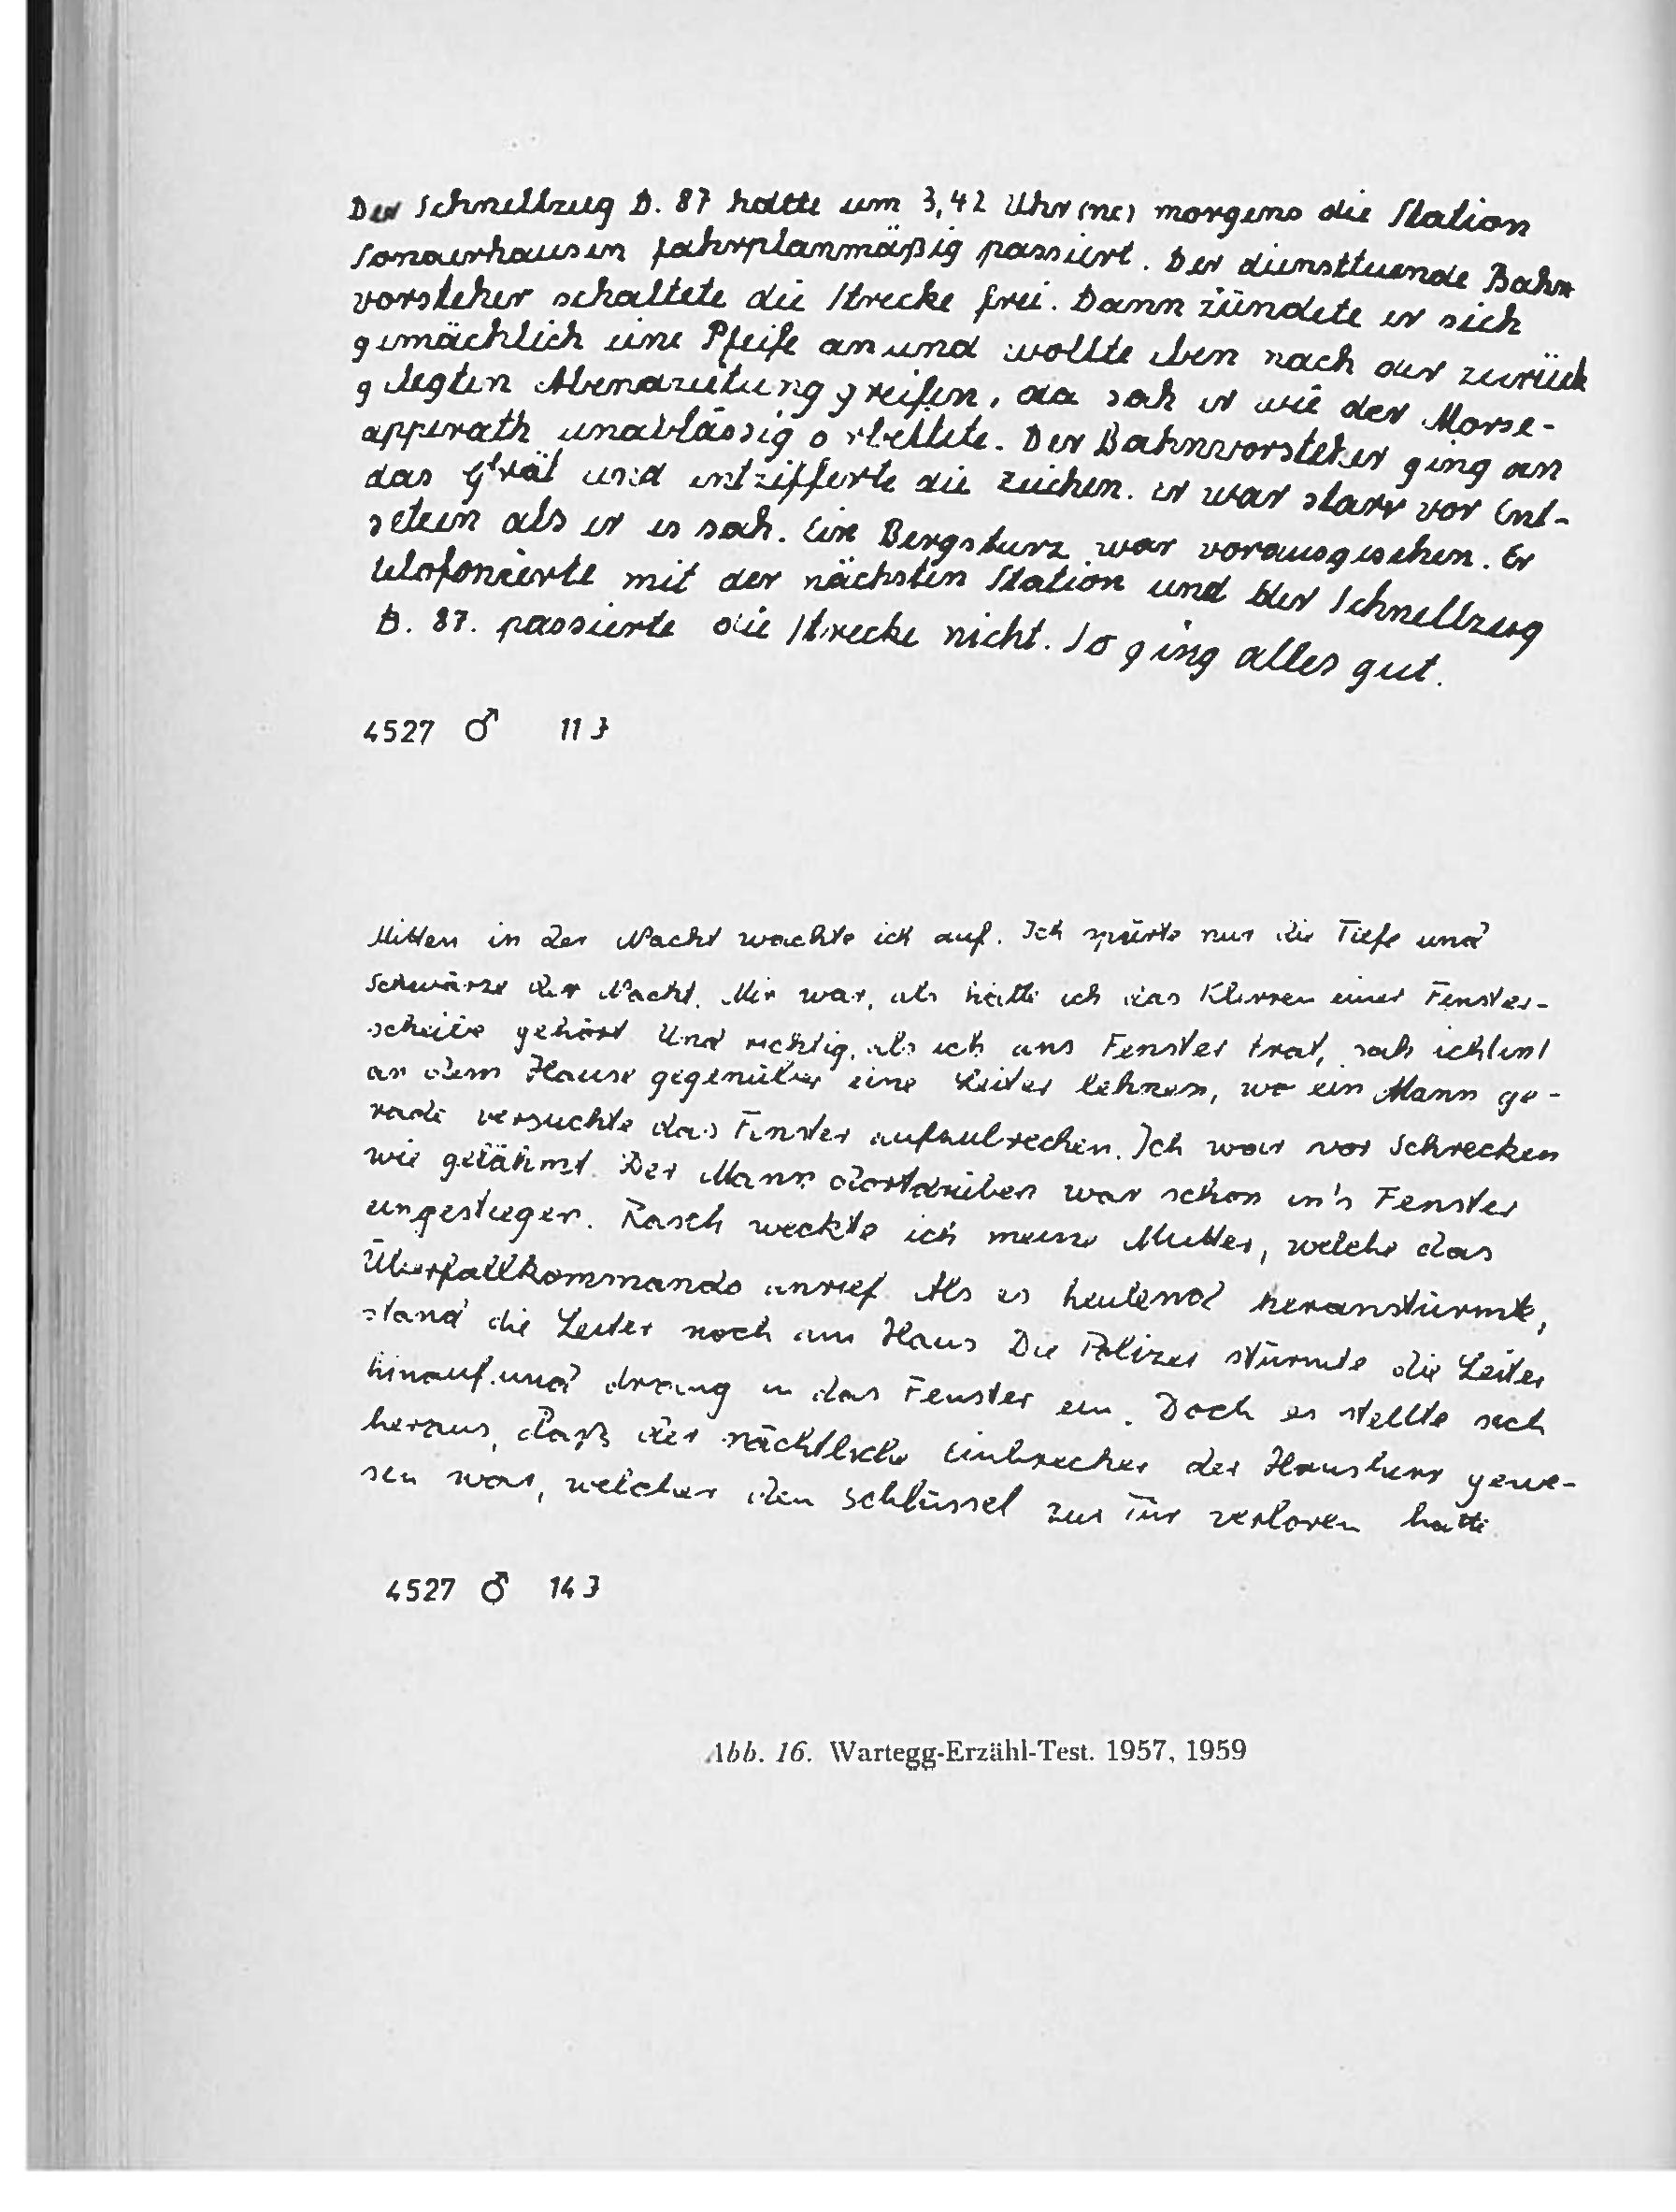 Der Schnellzug D. 87 hatte um 3,42 Uhr morgens die Station
Sondershausen fahrplanmäßig passiert. Der diensttuende Bahn
vorsteher schaltete die Strecke frei. Dann zündete er sich
gemächlich eine Pfeife an und wollte eben nach der zurück
gelegten Abendzeitung greifen, da sah er wie der Morse-
apperath unablässig. Der Bahnvorsteher ging an
das und entzifferte die Zeichen. er war starr vor Ent-
setzen als er es sah. Ein Bergsturz war vorausgesehen. Er
telefonierte mit der nächsten Station und der Schnellzug
D. 87. passierte die Strecke nicht. So ging alles gut.
4527 ♂ 11 J
Mitten in der Nacht wachte ich auf. Ich spürte nur die Tiefe und
Schwärze der Nacht. Mir war, als hätte ich das Klirren einer Fenster-
scheibe gehört. Und richtig, als ich ans Fenster trat, sah ich
an dem Hause gegenüber eine Leiter lehnen, wo ein Mann ge-
rade versuchte das Fenster aufzubrechen. Ich war vor Schrecken
wie gelähmt. Der Mann dortdrüben war schon in's Fenster
eingestiegen. Rasch weckte ich meine Mutter, welche das
Überfallkommando anrief. Als es heulend heranstürmte,
stand die Leiter noch am Haus. Die Polizei stürmte die Leiter
hinauf und drang in das Fenster ein. Doch es stellte sich
heraus, daß der nächtliche Einbrecher der Hausherr gewe-
sen war, welcher den Schlüssel zur Tür verloren hatte.
4527 ♂ 14 J
Abb. 16. Wartegg-Erzähl-Test. 1957, 1959